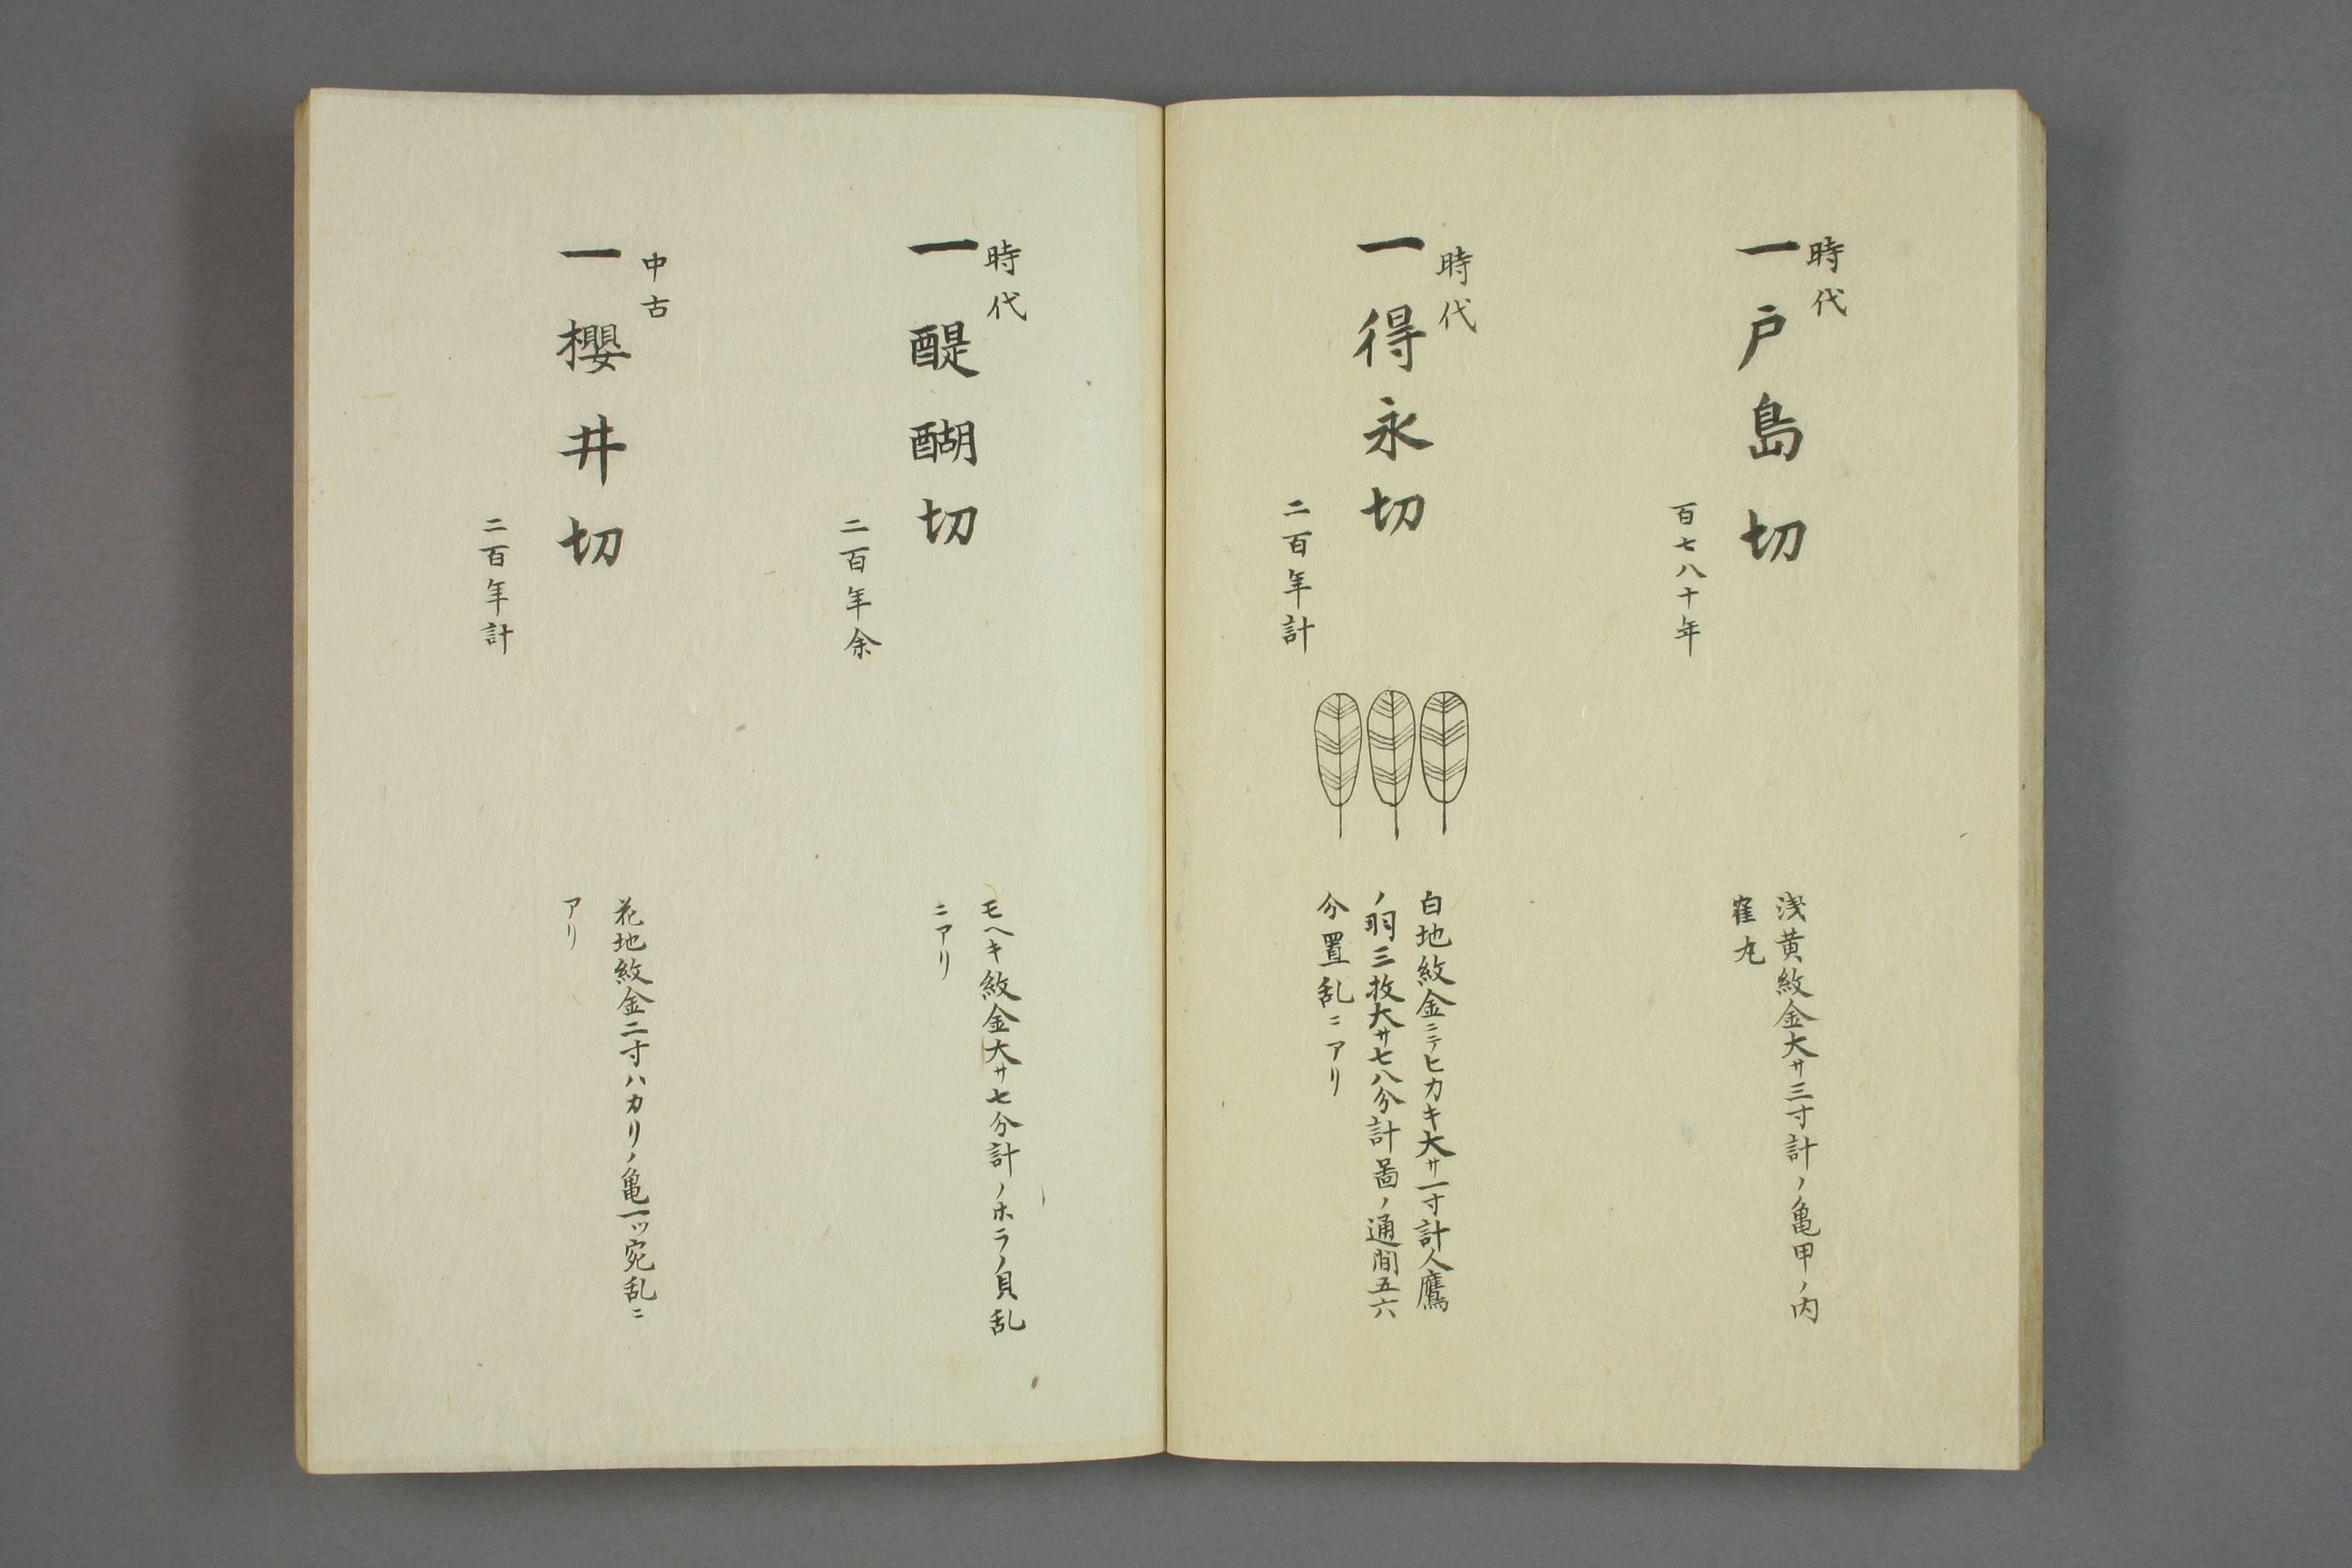 時代
一戸島切
百七八十年
浅黄紋金大サ三寸計ノ亀甲ノ内
寉丸
時代
一得永切
二百年計
白地紋金ニテヒカキ大サ一寸計人鷹
ノ羽三枚大サ七八分計啚ノ通間五六
分置乱ニアリ
時代
一醍醐切
二百年余
モヘキ紋金大サ七分計ノホラノ貝乱
ニアリ
中古
一櫻井切
二百年計
花地紋金二寸ハカリノ亀一ツ宛乱ニ
アリ